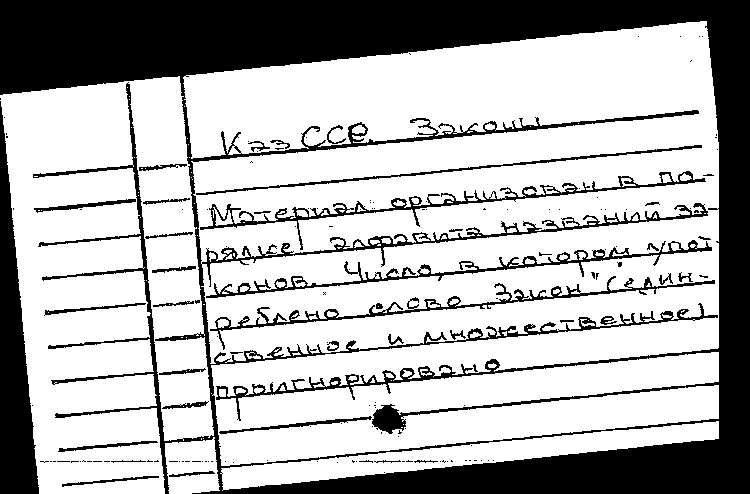 КазССР. Законы
Материал организован в по-
рядке алфавита названий за-
конов. Число, в котором упот-
реблено слово „Закон" (един-
ственное и множественное)
проигнорировано